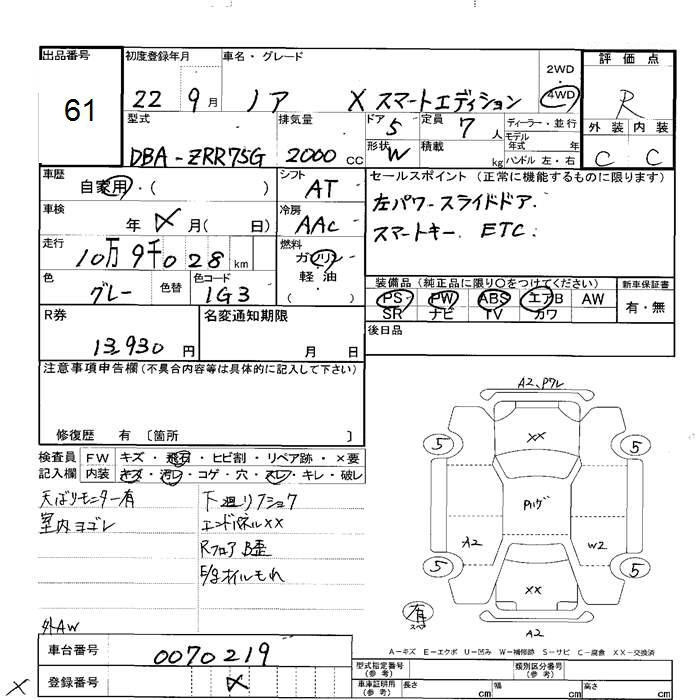 出品番号
61
初度登録年月
22 9月
車名・グレード
ノア X スマートエディション
2WD
・
4WD
評価点
R
外装 内装
C C
型式
DBA-ZRR75G
排気量
2000 CC
ドア
5
定員
7 人
形状
W
積載
kg
ディーラー・並行
モデル
年式 年
ハンドル 左・右
車歴
自家用・( )
シフト
AT
セールスポイント (正常に機能するものに限ります)
左パワースライドドア.
スマートキー. ETC.
車検
年 月( 日)
冷房
AAC
走行
10万9千028 km
燃料
ガソリン
軽油
( )
色
グレー
色替
色コード
1G3
装備品(純正品に限り〇をつけてください)
PS・PW・ABS・エアB AW
SR ナビ TV カワ
新車保証書
有・無
R券
13,930 円
名変通知期限
月 日
後日品
注意事項申告欄(不具合内容等は具体的に記入して下さい)
修復歴 有 〔箇所 〕
検査員
記入欄
FW キズ・飛石・ヒビ割・リペア跡・×要
内装 キズ・汚レ・コゲ・穴・スレ・キレ・破レ
天ばりモニター有
室内ヨゴレ
外AW
下廻リアショク
エンドパネルXX
Rフロア B歪
E/gオイルもれ
A2、Pワレ
XX
5 5
Pハゲ
A2 W2
5 5
XX
有
スペア
A2
A-キズ E-エクボ U-凹み W-補修跡 S-サビ C-腐食 XX-交換済
車台番号
0070219
登録番号
X
型式指定番号
(参考)
類別区分番号
(参考)
車庫証明用
(参考)
長さ cm 幅 cm 高さ cm